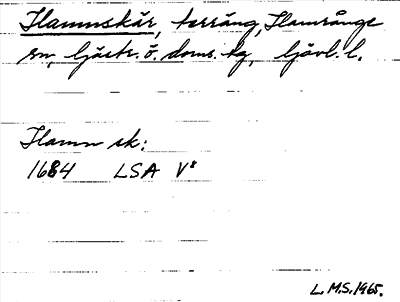 Hamnskär, terräng, Hamrånge
sn, Gästr. ö. doms. hg, Gävl. l.
Hamn sk:
1684 LSA V⁸
L.M.S. 1965.